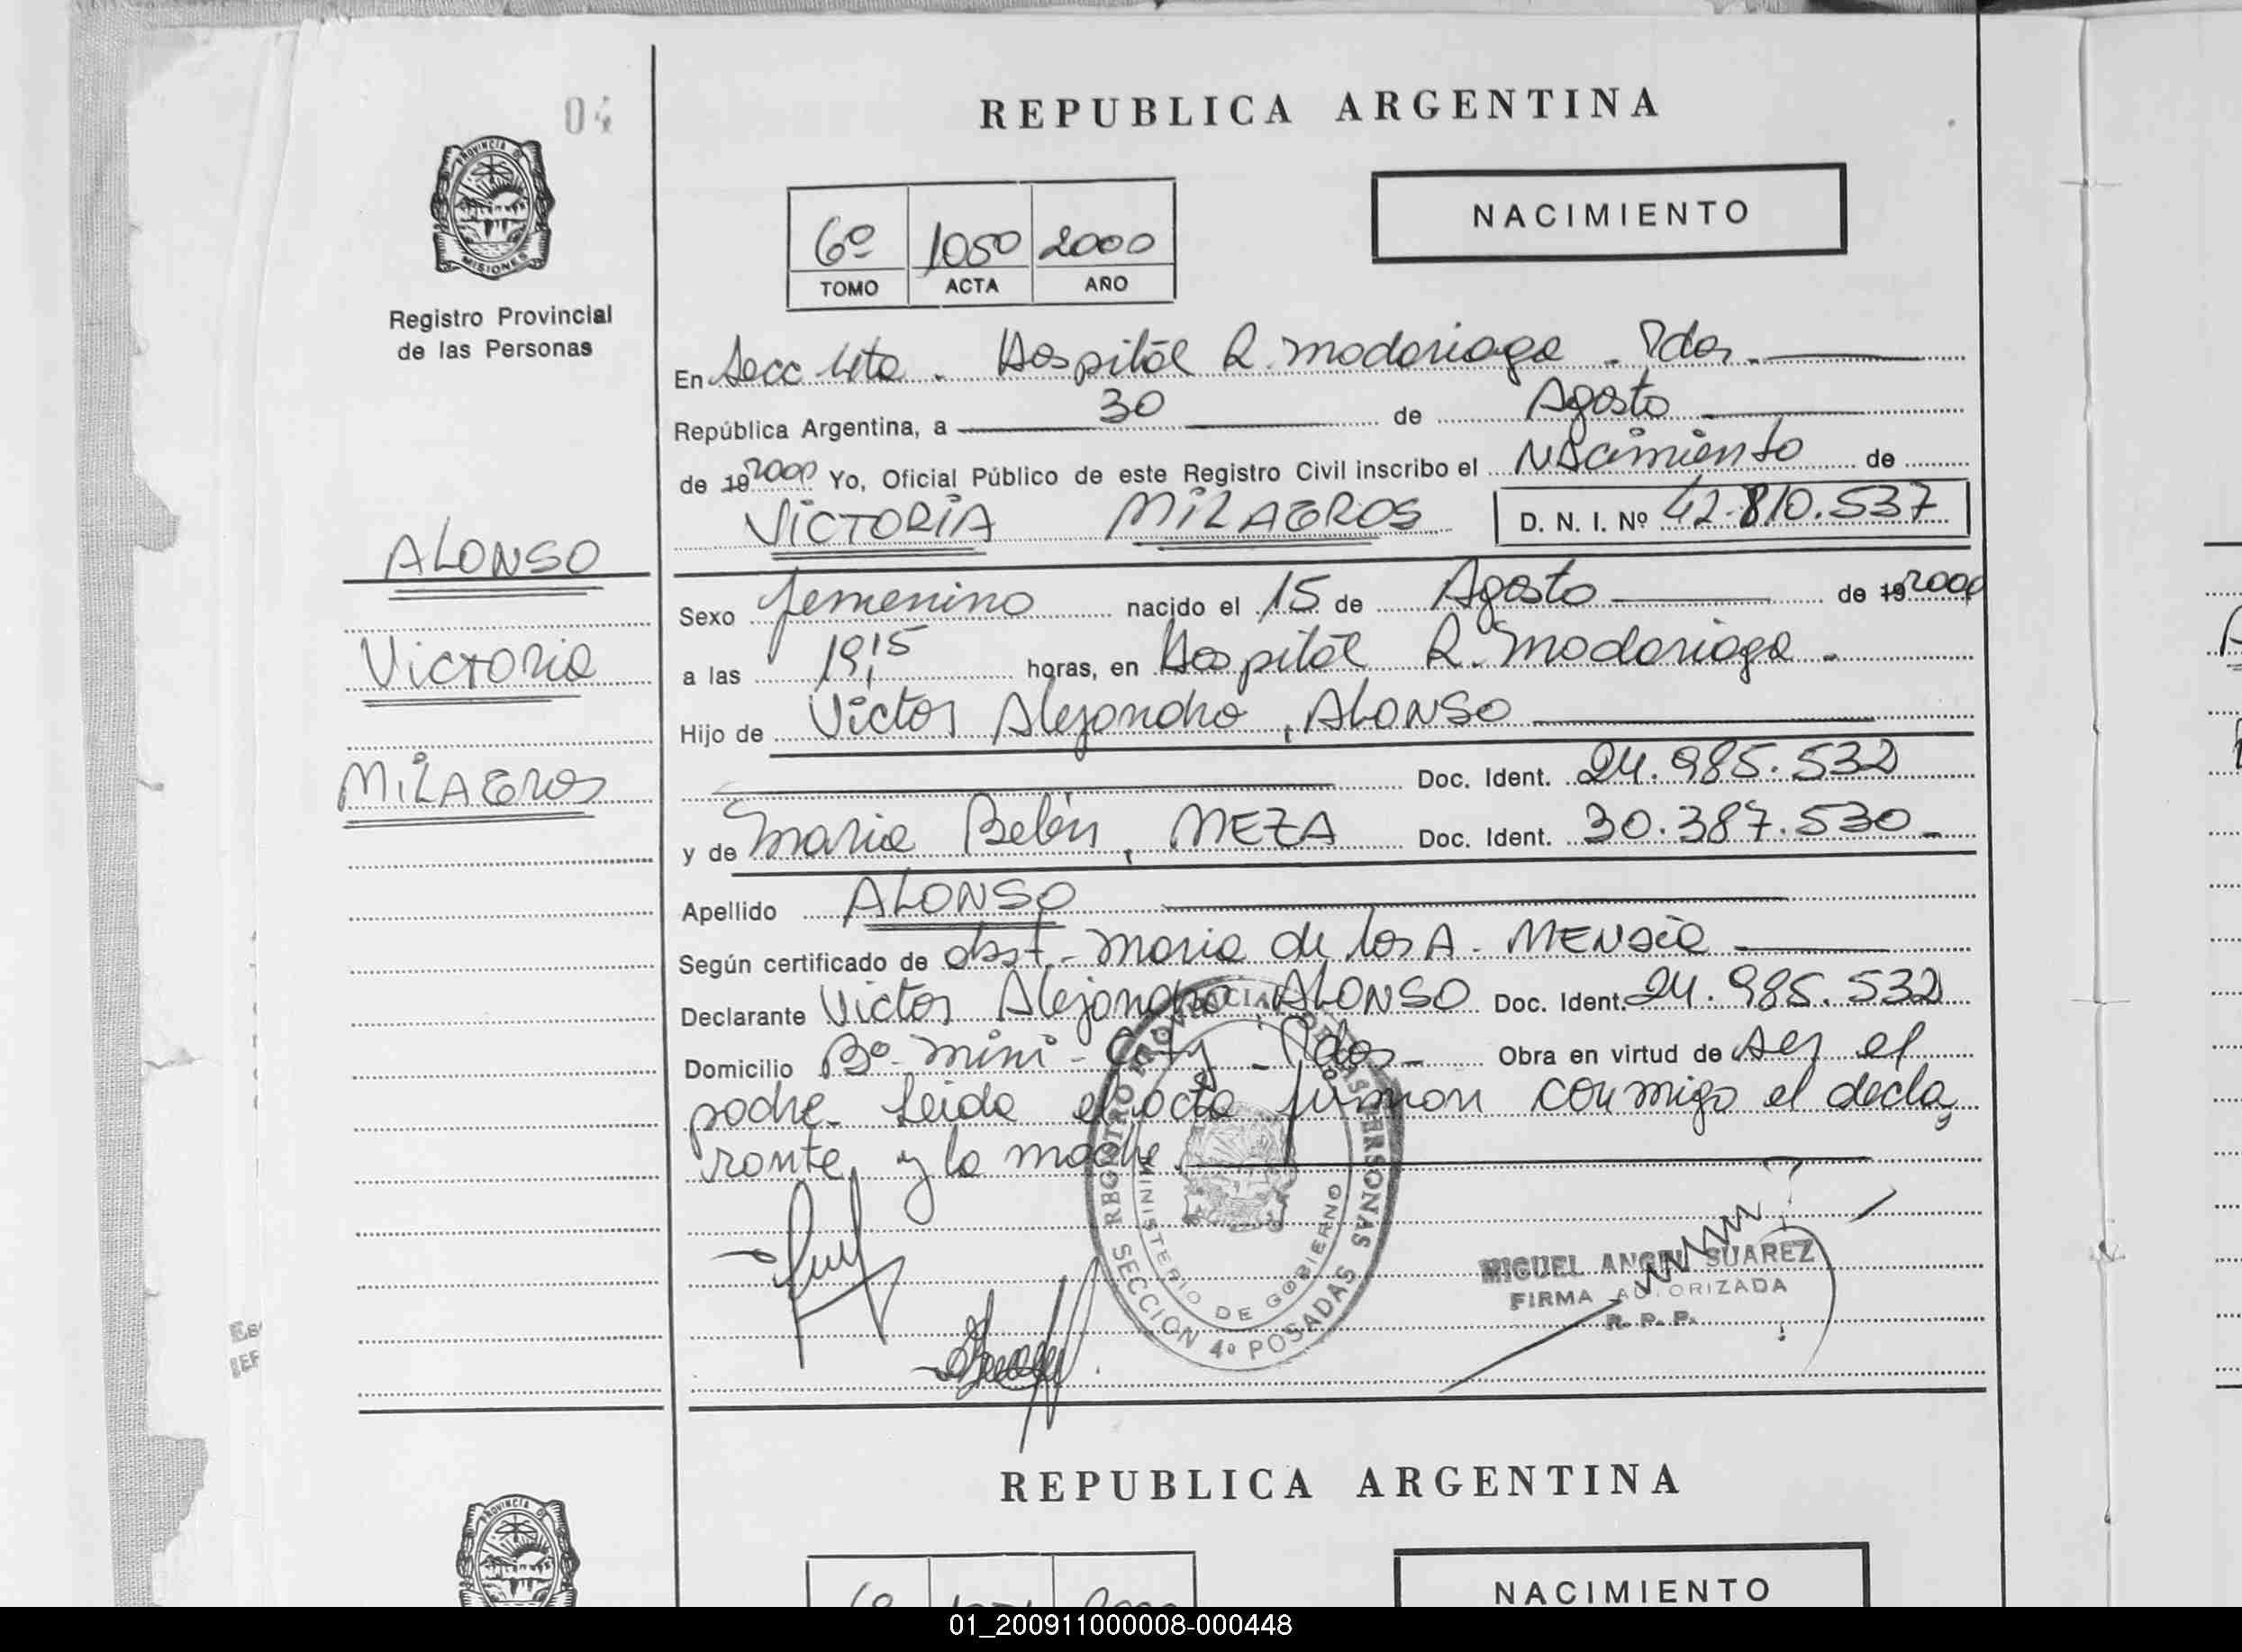 04
PROVINCIA DE
MISIONES
Registro Provincial
de las Personas
ALONSO
Victoria
MILAGROS
REPUBLICA ARGENTINA
6º 1050 2000
TOMO ACTA AÑO
NACIMIENTO
En Secc 4ta. Hospital R. Madariaga. Pdas.
República Argentina, a 30 de Agosto
de 19 2000 Yo, Oficial Público de este Registro Civil inscribo el Nacimiento de
VICTORIA MILAGROS D. N. I. Nº 42.810.537
Sexo femenino nacido el 15 de Agosto de 19 2000
a las 19,15 horas, en Hospital R. Madariaga.
Hijo de Victor Alejandro, ALONSO
Doc. Ident. 24.985.532
y de Maria Belén, MEZA Doc. Ident. 30.387.530
Apellido ALONSO
Según certificado de obst. Maria de los A.
Declarante Victor Alejandro, ALONSO Doc. Ident. 24.985.532
Domicilio Bº Mini-City - Pdas Obra en virtud de ser el
padre. Leida el acta firman conmigo el decla
rante, y la madre.
REGISTRO PROVINCIAL DE LAS PERSONAS
MINISTERIO DE GOBIERNO
SECCION 4º POSADAS
MIGUEL ANGEL SUAREZ
FIRMA AUTORIZADA
R. P. P.
REPUBLICA ARGENTINA
PROVINCIA DE
NACIMIENTO
01_200911000008-000448